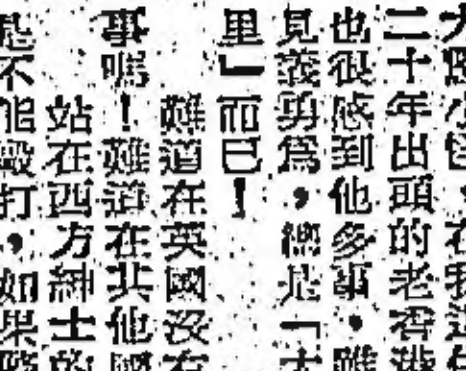 二十年出頭的老香港
也很感到他多事。雖
見義勇為,總是「大
里」而已!
難道在英國沒有
事嗎!難道在其他國
站在西方紳士的
不能毆打,如果